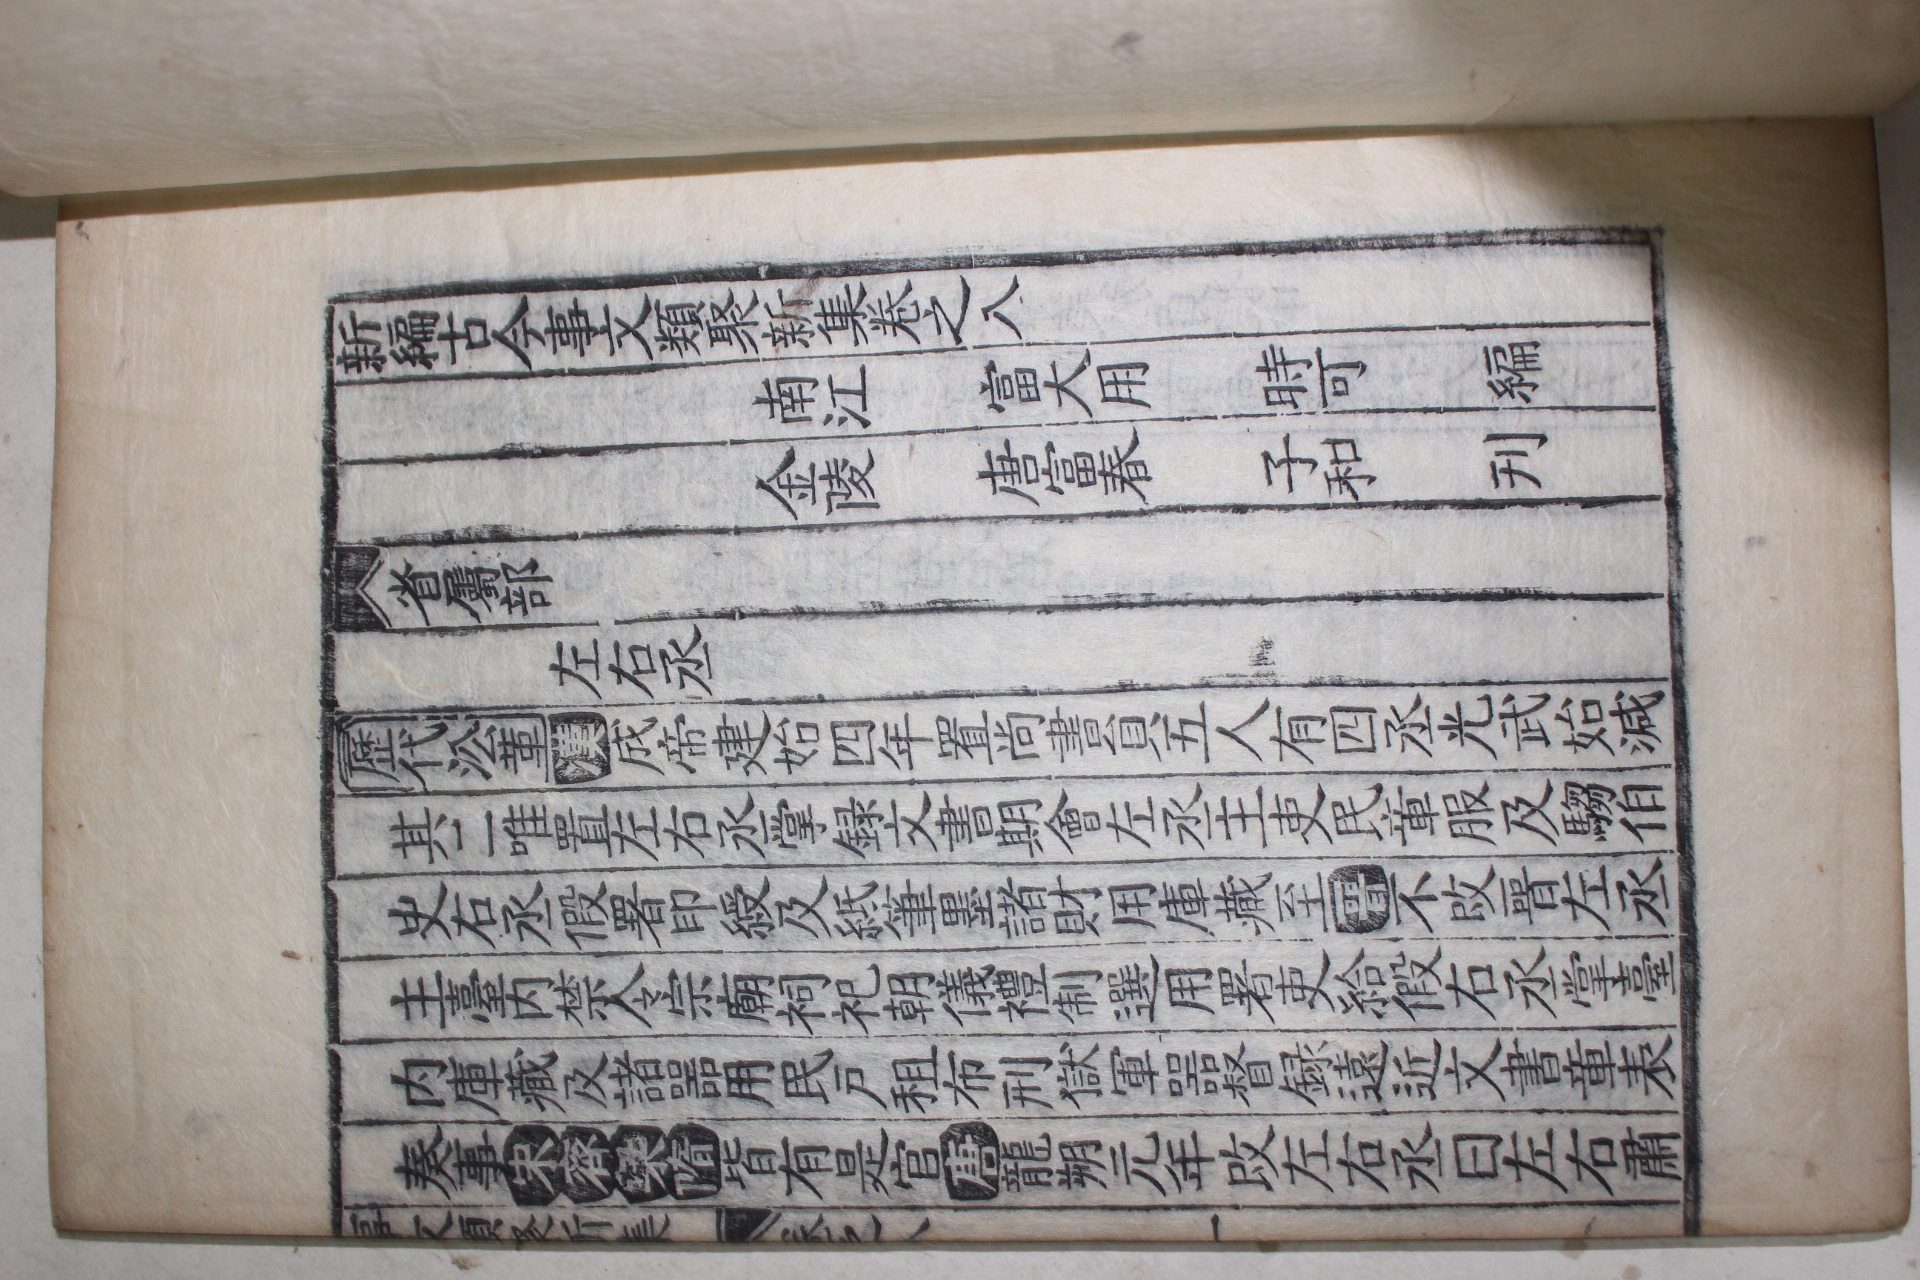 新編古今事文類聚新集卷之八
南江 富大用 時可 編
金陵 唐富春 子和 刊
省屬部
左右丞
歷代沿革 漢 成帝建始四年置尚書員五人有四丞光武始減
其二唯置左右丞掌錄文書期會左丞主吏民章服及騶伯
史右丞假署印綬及紙筆墨諸財用庫藏至晉不改晉左丞
主臺內禁令宗廟祠祀朝儀禮制選用署吏給假右丞掌臺
內庫藏及諸器用民戶租布刑獄軍器督錄遠近文書章表
奏事宋齊梁隋皆有是官唐龍朔元年改左右丞曰左右肅
事文類聚新集 卷之八 一